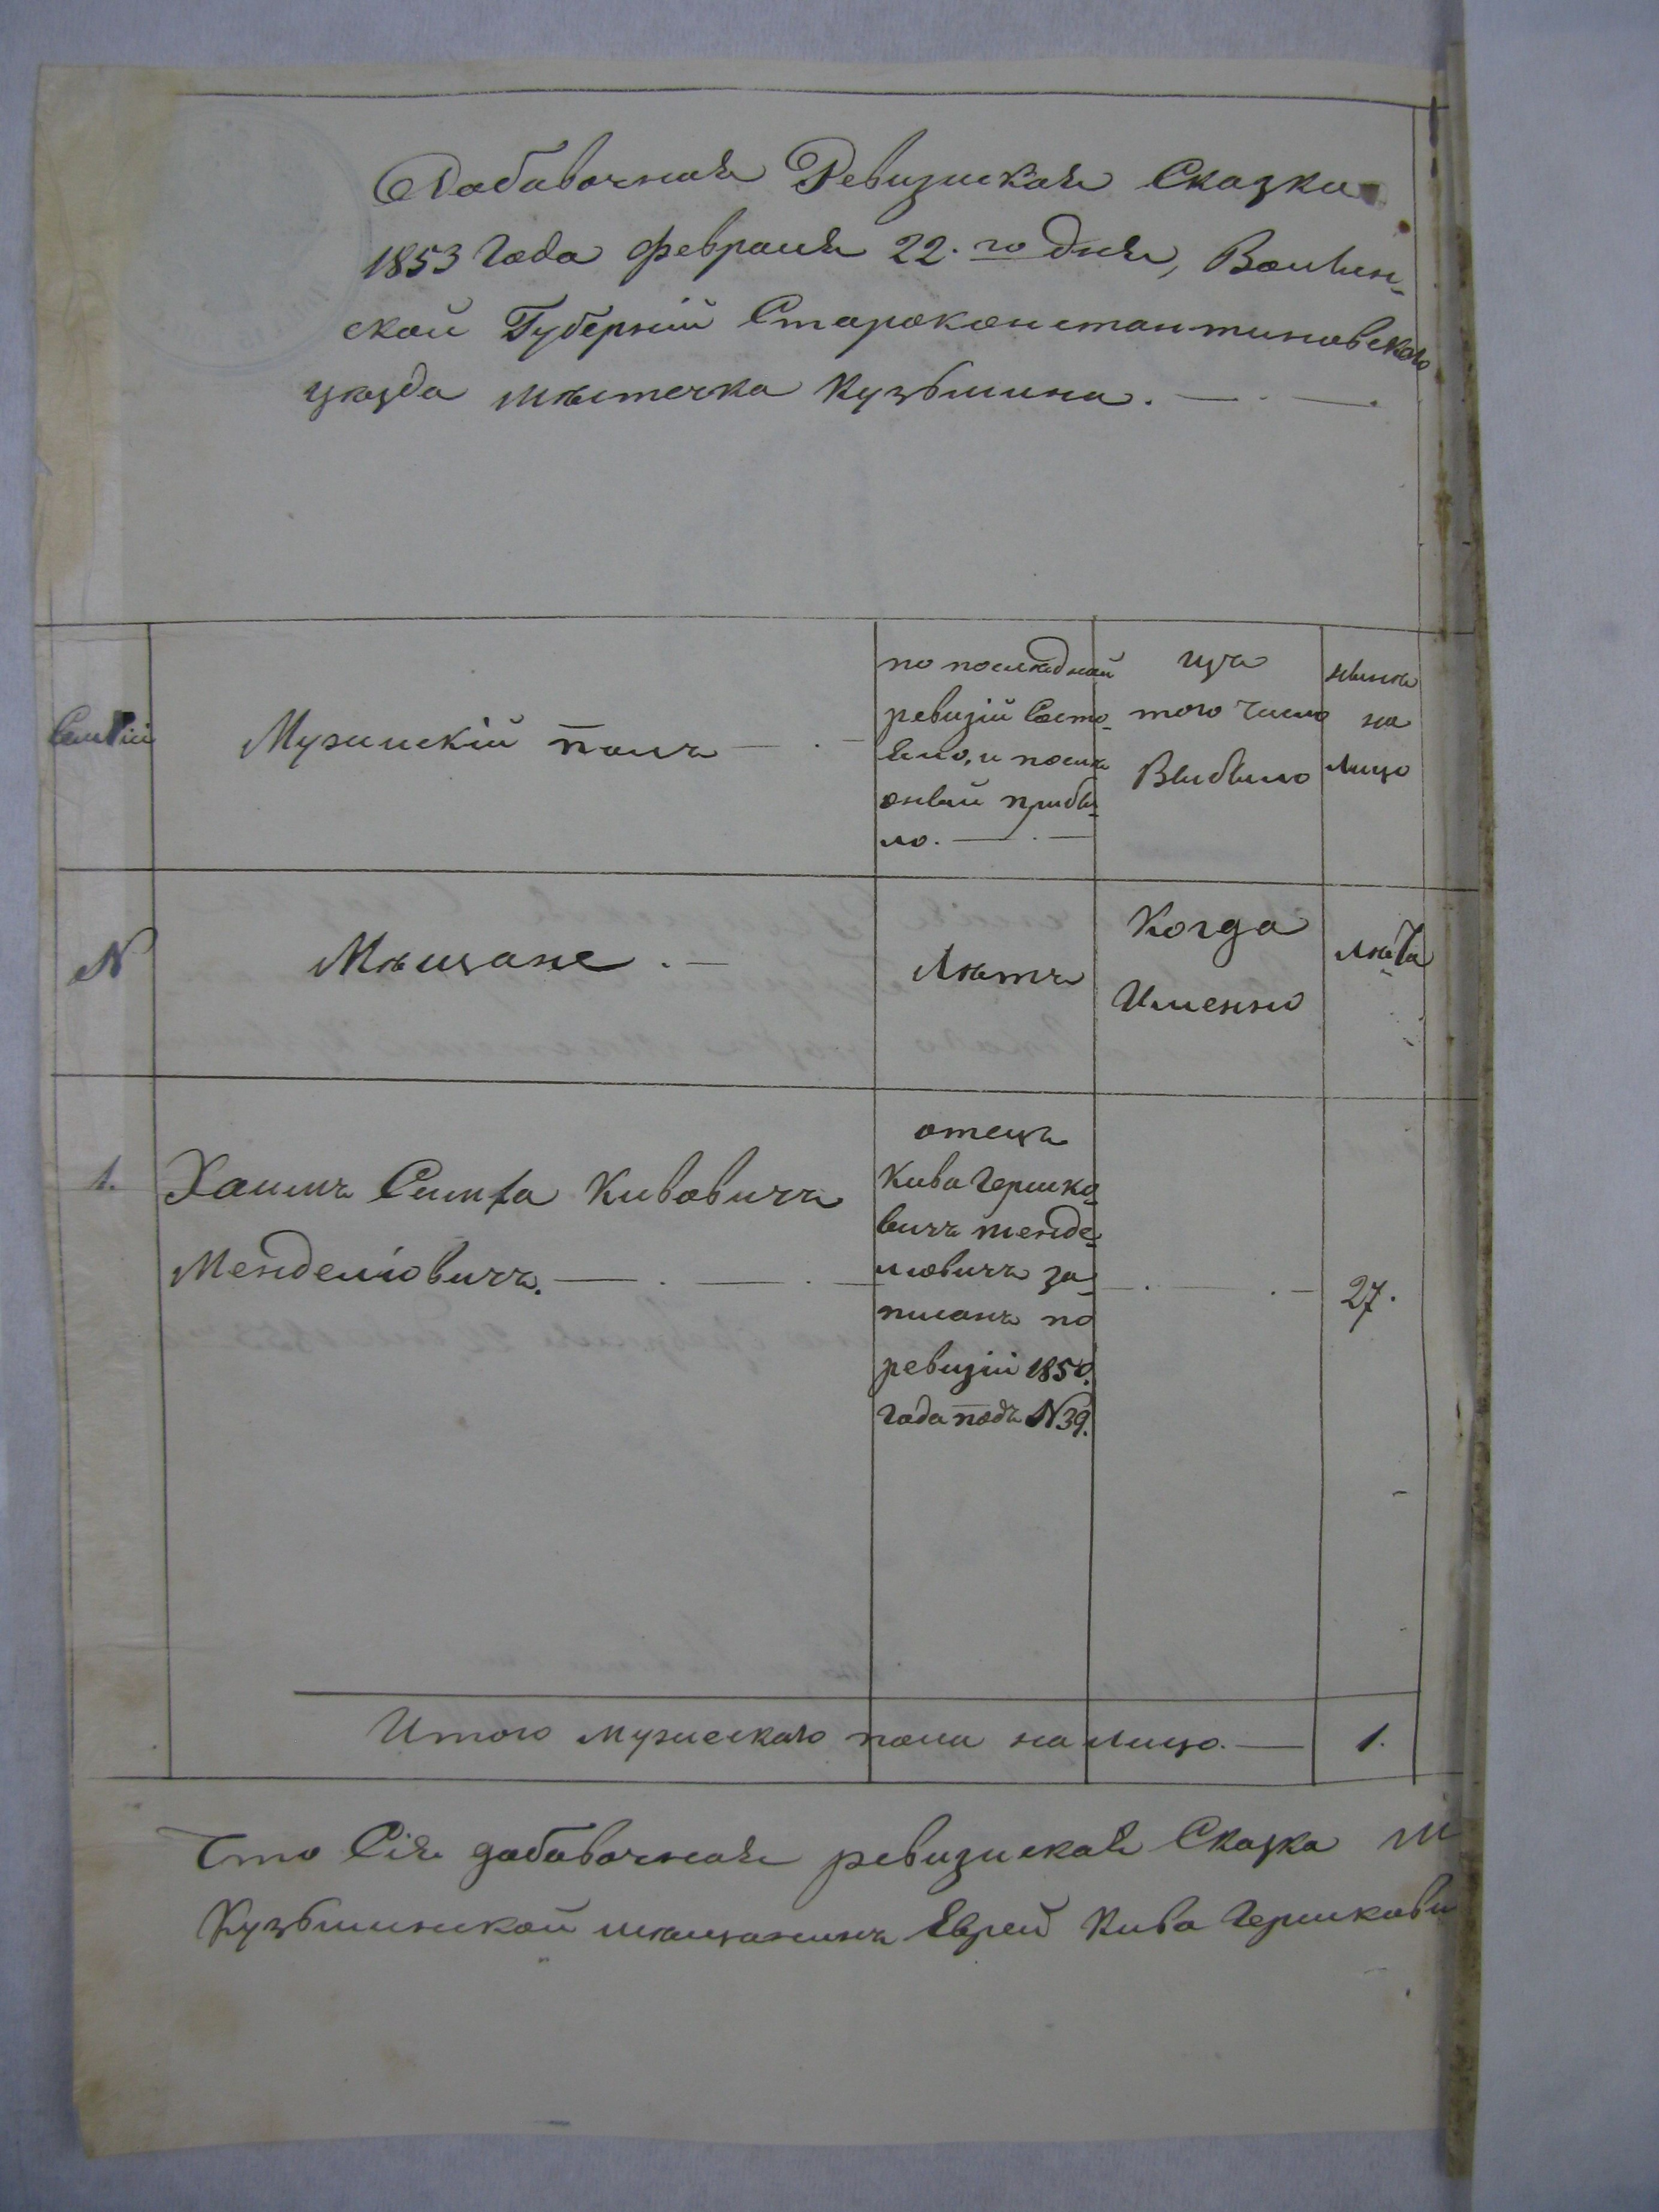 Добавочная Ревизская Сказка
1853 Года февраля 22. го дня, Волын-
ской Губерніи Староконстантиновскаго
уѣзда мѣстечка Кузьмина.
Семьи
Мужискій полъ
по послѣдней
ревизіи Состо-
яло, и послѣ
оный прибы-
ло.
изъ
того Число
Выбыло
нынѣ
на
лицо
N
Мѣщане.
Лѣтъ
Когда
Именно
лѣта
1.
Хаимъ Симха Кивовичъ
Менделіовичъ.
отецъ
Кива Гершко-
вичъ менде-
ліовичъ за-
писанъ по
ревизіи 1850.
Года подъ N39.
27.
Итого мужескаго пола на лицо. 1.
Что Сія добавочная ревизская Сказка
Кузьминской мѣщанинъ Еврей Кива Гершкови